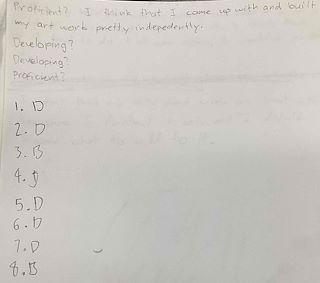 Proficient? I think that I came up with and built
my art work pretty indepedently.
Developing?
Developing?
Proficient?
1. D
2. D
3. B
4. J
5. D
6. D
7. D
8. B